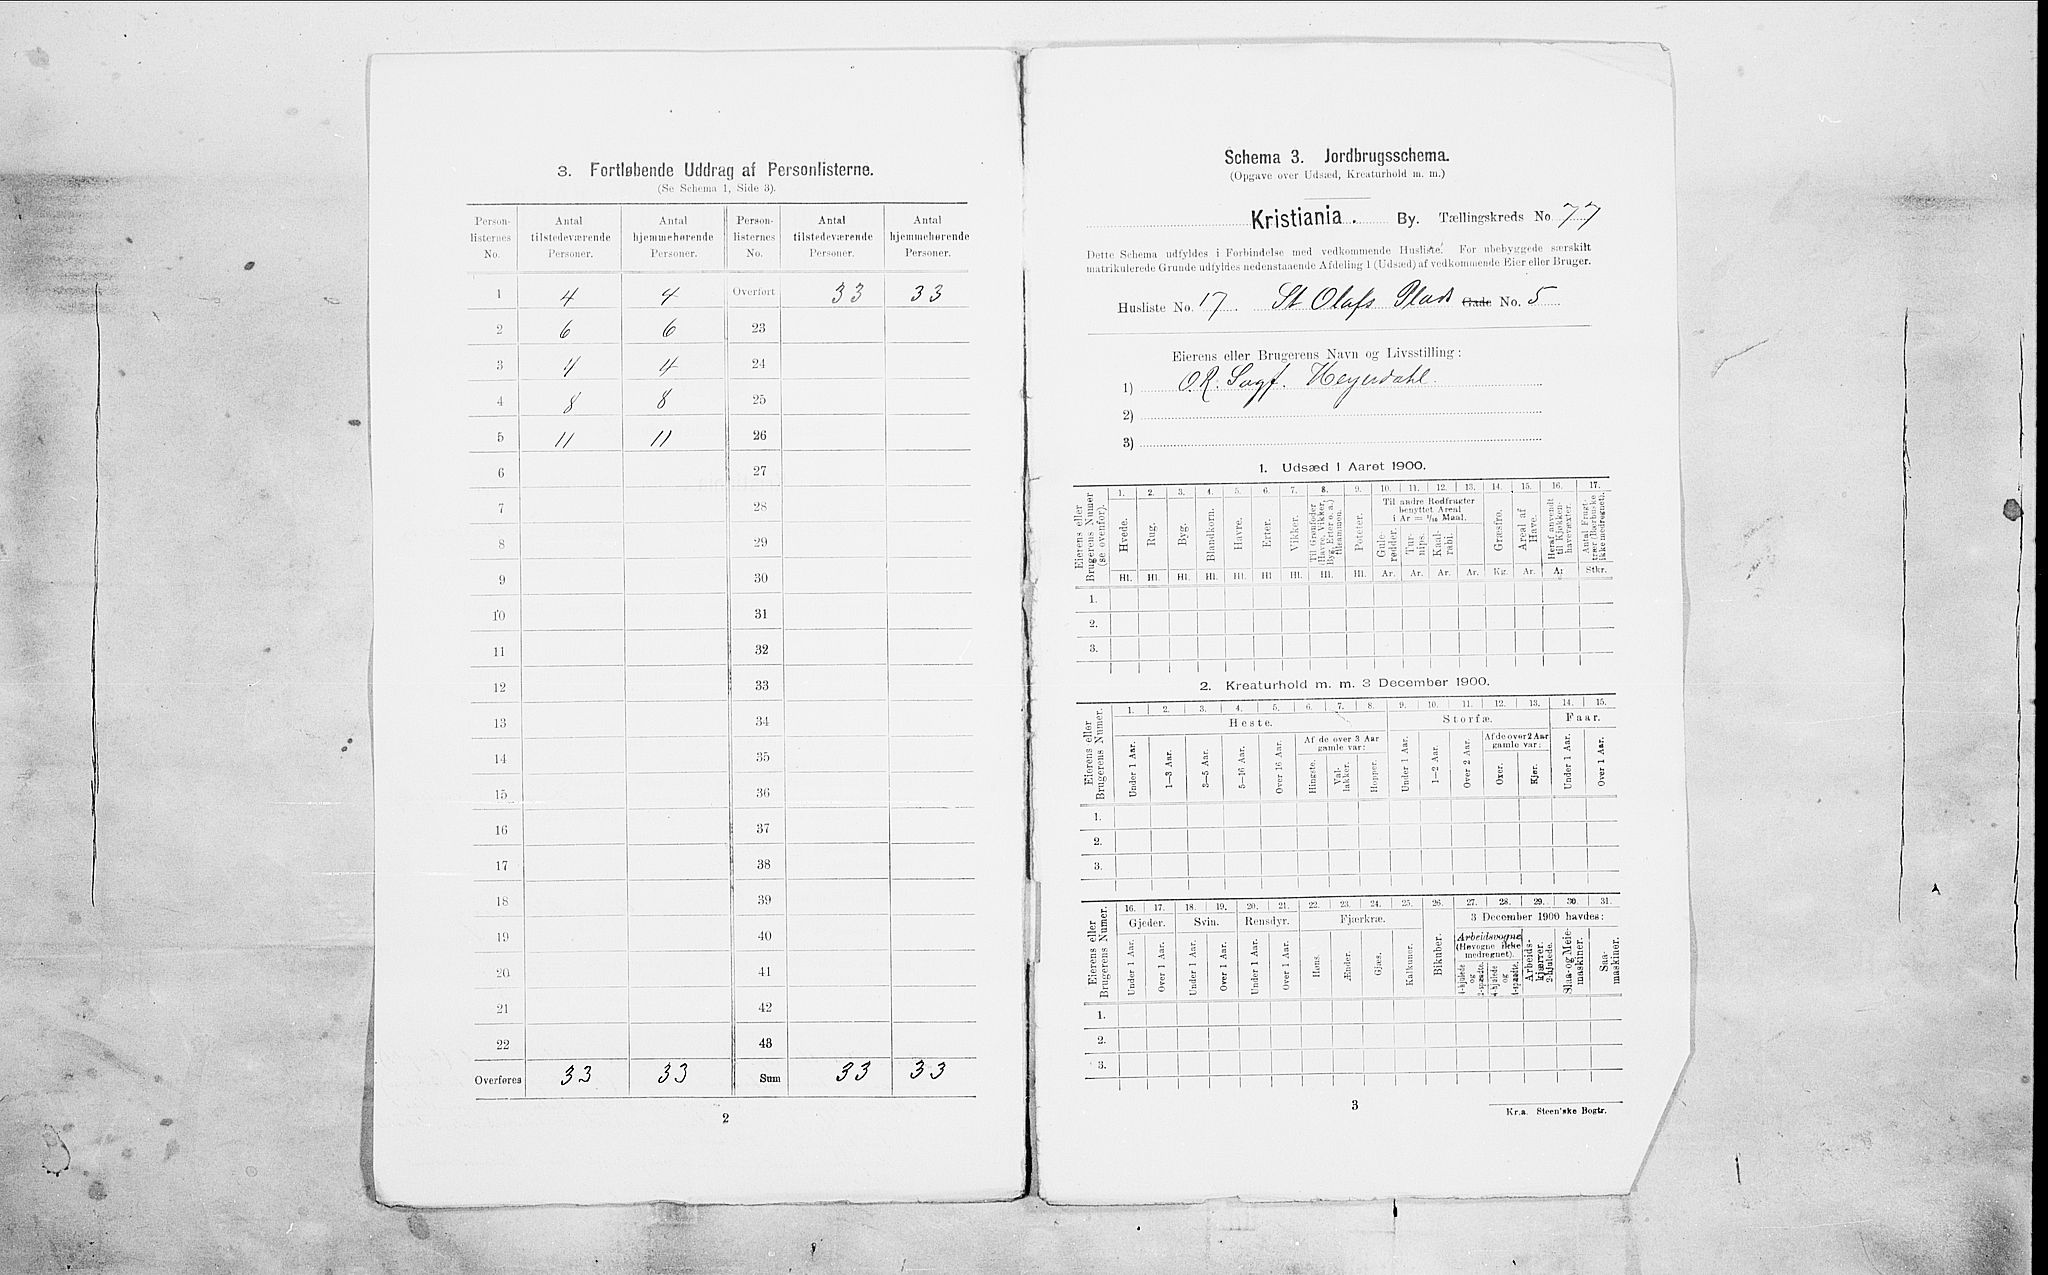 3. Fortløbende Uddrag af Personlisterne.
(Se Schema 1, Side 3).
Person-listernes No. | Antal tilstedeværende Personer. | Antal hjemmehørende Personer. | Person-listernes No. | Antal tilstedeværende Personer. | Antal hjemmehørende Personer.
1 4 4 Overført 33 33
2 6 6 23
3 4 4 24
4 8 8 25
5 11 11 26
6 27
7 28
8 29
9 30
10 31
11 32
12 33
13 34
14 35
15 36
16 37
17 38
18 39
19 40
20 41
21 42
22 43
Overføres 33 33 Sum 33 33
2
Schema 3. Jordbrugsschema.
(Opgave over Udsæd, Kreaturhold m. m.)
Kristiania. By. Tællingskreds No. 77
Dette Schema udfyldes i Forbindelse med vedkommende Husliste. For ubebyggede særskilt
matrikulerede Grunde udfyldes nedenstaaende Afdeling 1 (Udsæd) af vedkommende Eier eller Bruger.
Husliste No. 17. St Olafs Plads Gade No. 5
Eierens eller Brugerens Navn og Livsstilling:
1) O.R. Sagf. Heyerdahl.
2)
3)
1. Udsæd i Aaret 1900.
Eierens eller Brugerens Numer (se ovenfor).
1. 2. 3. 4. 5. 6. 7. 8. 9. 10. 11. 12. 13. 14. 15. 16. 17.
Hvede. Rug. Byg. Blandkorn. Havre. Erter. Vikker. Til Grønfoder (Havre, Vikker, Byg, Erter o. a.) tilsammen. Poteter.
Til andre Rodfrugter benyttet Areal i Ar = 1/10 Maal.
Gule-rødder. Tur-nips. Kaal-rabi. Græsfrø. Areal af Have. Heraf anvendt til Kjøkken-havevæxter. Antal Frugt-trær (bærbuske ikke medregnet).
Hl. Hl. Hl. Hl. Hl. Hl. Hl. Hl. Hl. Ar. Ar. Ar. Ar. Kg. Ar. Ar Stkr.
1.
2.
3.
2. Kreaturhold m. m. 3 December 1900.
Eierens eller Brugerens Numer.
1. 2. 3. 4. 5. 6. 7. 8. 9. 10. 11. 12. 13. 14. 15.
Heste. Storfæ. Faar.
Af de over 3 Aar gamle var: Af de over 2 Aar gamle var:
Under 1 Aar. 1—3 Aar. 3—5 Aar. 5—16 Aar. Over 16 Aar. Hingste. Val-lakker. Hopper. Under 1 Aar. 1—2 Aar. Over 2 Aar. Oxer. Kjør. Under 1 Aar. Over 1 Aar.
1.
2.
3.
Eierens eller Brugerens Numer.
16. 17. 18. 19. 20. 21. 22. 23. 24. 25. 26. 27. 28. 29. 30. 31.
Gjeder. Svin. Rensdyr. Fjærkræ. Bikuber. 3 December 1900 havdes:
Arbeidsvogne (Høvogne ikke medregnet).
Under 1 Aar. Over 1 Aar. Under 1 Aar. Over 1 Aar. Under 1 Aar. Over 1 Aar. Høns. Ænder. Gjæs. Kalkuner. 4-hjulede og 2-spændte. 4-hjulede og 1-spændte. Arbeids-kjærrer. 2-hjulede. Slaa- og Meie-maskiner. Saa-maskiner.
1.
2.
3.
3
Kr.a. Steen'ske Bogtr.